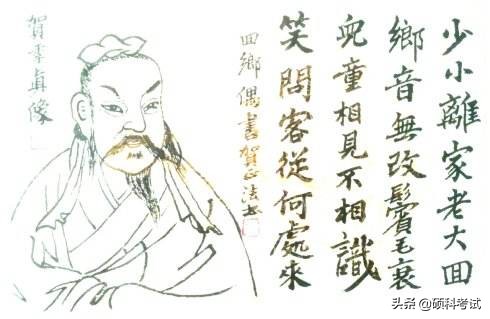 少小離家老大囬
鄉音無改鬢毛衰
兒童相見不相識
笑問客從何處來
囬鄉偶書賀正法书
賀季真像
头条 @硕科考试